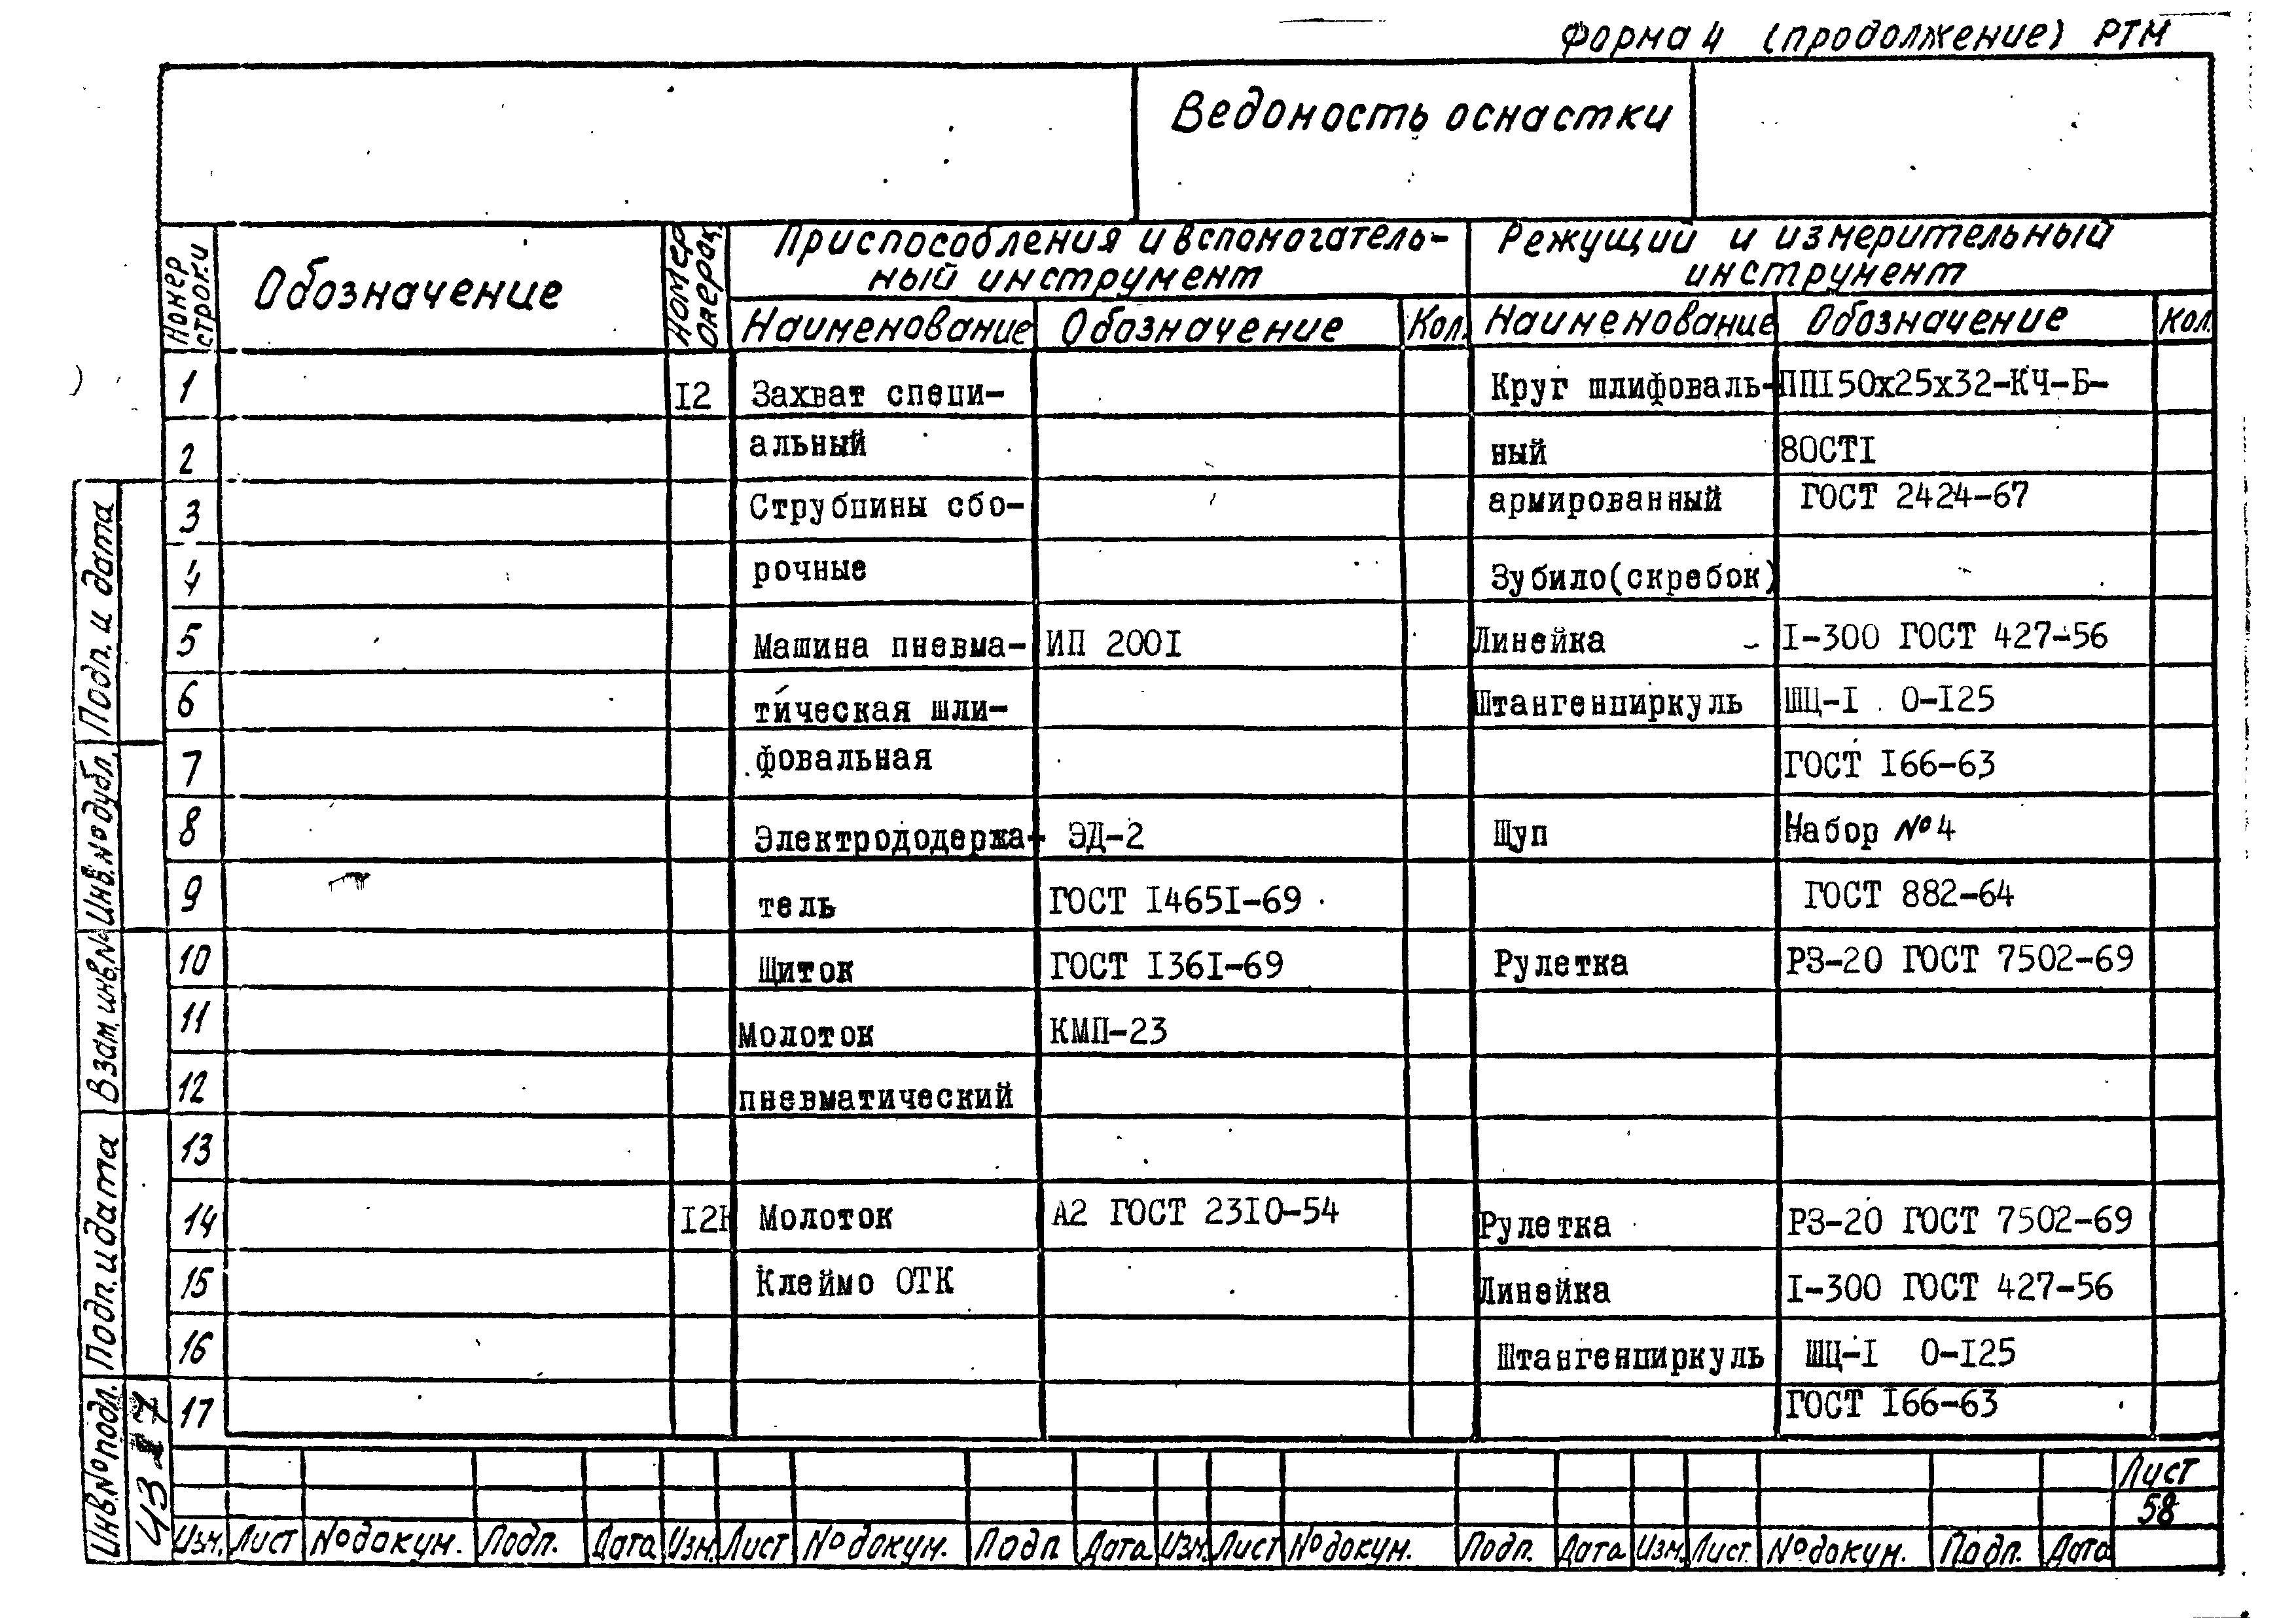 Форма 4 (продолжение) РТМ
Ведомость оснастки
Номер строки
Обозначение
Номер операц.
Приспособления и вспомогатель-
ный инструмент
Режущий и измерительный
инструмент
Наименование Обозначение Кол. Наименование Обозначение Кол.
1 12 Захват специ- Круг шлифоваль- ПП150х25х32-КЧ-Б-
2 альный ный 80СТ1
3 Струбцины сбо- армированный ГОСТ 2424-67
4 рочные Зубило(скребок)
5 Машина пневма- ИП 2001 Линейка 1-300 ГОСТ 427-56
6 тическая шли- Штангенциркуль ШЦ-1 0-125
7 фовальная ГОСТ 166-63
8 Электрододержа- ЭД-2 Щуп Набор №4
9 тель ГОСТ 14651-69 ГОСТ 882-64
10 Щиток ГОСТ 1361-69 Рулетка РЗ-20 ГОСТ 7502-69
11 Молоток КМП-23
12 пневматический
13
14 12К Молоток А2 ГОСТ 2310-54 Рулетка РЗ-20 ГОСТ 7502-69
15 Клеймо ОТК Линейка 1-300 ГОСТ 427-56
16 Штангенциркуль ШЦ-1 0-125
17 ГОСТ 166-63
Подп. и дата
Инв.№ дубл.
Взам.инв.№
Подп. и дата
Инв.№ подл.
Лист
58
Изм. Лист № докум. Подп. Дата Изм. Лист № докум. Подп Дата Изм. Лист № докум. Подп. Дата Изм. Лист № докум. Подп. Дата